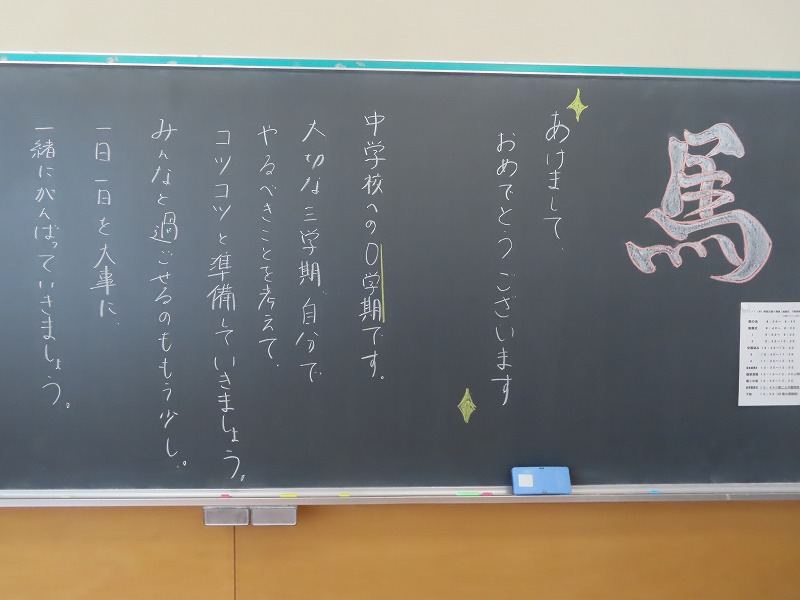 馬
あけまして、
おめでとうございます
中学校への0学期です。
大切な三学期、自分で
やるべきことを考えて、
コツコツと準備していきましょう。
みんなと過ごせるのももう少し。
一日一日を大事に、
一緒にがんばっていきましょう。